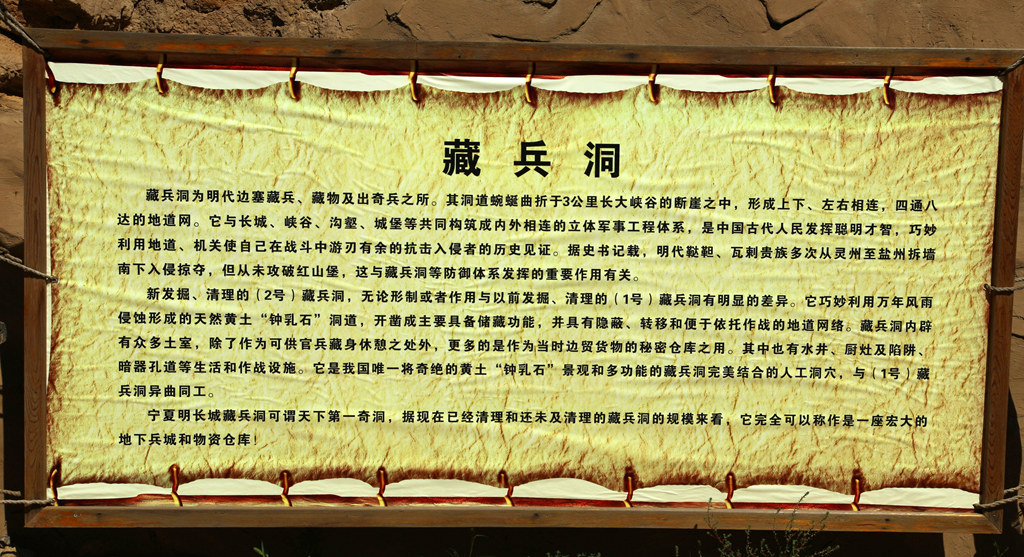 藏兵洞
藏兵洞为明代边塞藏兵、藏物及出奇兵之所。其洞道蜿蜒曲折于3公里长大峡谷的断崖之中，形成上下、左右相连，四通八
达的地道网。它与长城、峡谷、沟壑、城堡等共同构筑成内外相连的立体军事工程体系，是中国古代人民发挥聪明才智，巧妙
利用地道、机关使自己在战斗中游刃有余的抗击入侵者的历史见证。据史书记载，明代鞑靼、瓦剌贵族多次从灵州至盐州拆墙
南下入侵掠夺，但从未攻破红山堡，这与藏兵洞等防御体系发挥的重要作用有关。
新发掘、清理的（2号）藏兵洞，无论形制或者作用与以前发掘、清理的（1号）藏兵洞有明显的差异。它巧妙利用万年风雨
侵蚀形成的天然黄土“钟乳石”洞道，开凿成主要具备储藏功能，并具有隐蔽、转移和便于依托作战的地道网络。藏兵洞内辟
有众多土室，除了作为可供官兵藏身休憩之处外，更多的是作为当时边贸货物的秘密仓库之用。其中也有水井、厨灶及陷阱、
暗器孔道等生活和作战设施。它是我国唯一将奇绝的黄土“钟乳石”景观和多功能的藏兵洞完美结合的人工洞穴，与（1号）藏
兵洞异曲同工。
宁夏明长城藏兵洞可谓天下第一奇洞，据现在已经清理和还未及清理的藏兵洞的规模来看，它完全可以称作是一座宏大的
地下兵城和物资仓库！